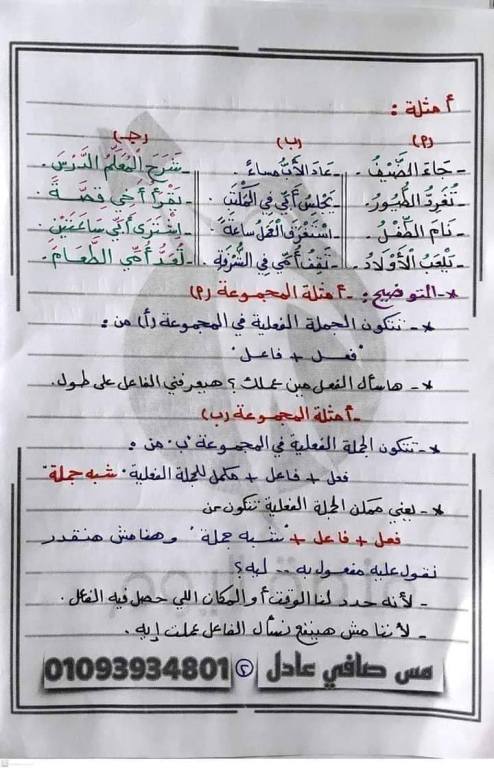 أمثلة :
(أ) (ب) (جـ)
- جَاءَ الضَّيْفُ. - عَادَ الأَبُ مساءً. - شَرَحَ الْمُعَلِّمُ الدَّرْسَ.
- تُغَرِدُ الطُّيُورُ. - يَجْلِسُ أَبِي فِي - تَقْرَأُ أُخْتِي قصَّةً.
- نَامَ الطِّفْلُ. - اسْتَغْرَقَ الْعَمَلُ سَاعَةً. - اشْتَرَى أَبِي سَاعَتَيْنِ.
- يَلْعَبُ الْأَوْلَادُ. - تَقِفُ أُمِّي فِي الشُّرْفَةِ. - تُعِدُّ أُمِّي الطَّعَامَ.
* - التوضيح : - أمثلة المجموعة (أ)
* - تتكون الجملة الفعلية في المجموعة (أ) من :
"فعل + فاعل"
* - هاسأل الفعل مين عملك ؟ هيعرفني الفاعل على طول.
- أمثلة المجموعة (ب)
* - تتكون الجملة الفعلية في المجموعة "ب" من :
فعل + فاعل + مكمل للجملة الفعلية "شبه جملة"
* - يعني ممكن الجملة الفعلية تتكون من
فعل + فاعل + "شبه جملة" وهنا مش هنقدر
نقول عليه مفعول به .. ليه ؟
- لأنه حدد لنا الوقت أو المكان اللي حصل فيه الفعل.
- لأننا مش هينفع نسأل الفاعل عملت إيه.
مس صافي عادل ٢ 01093934801